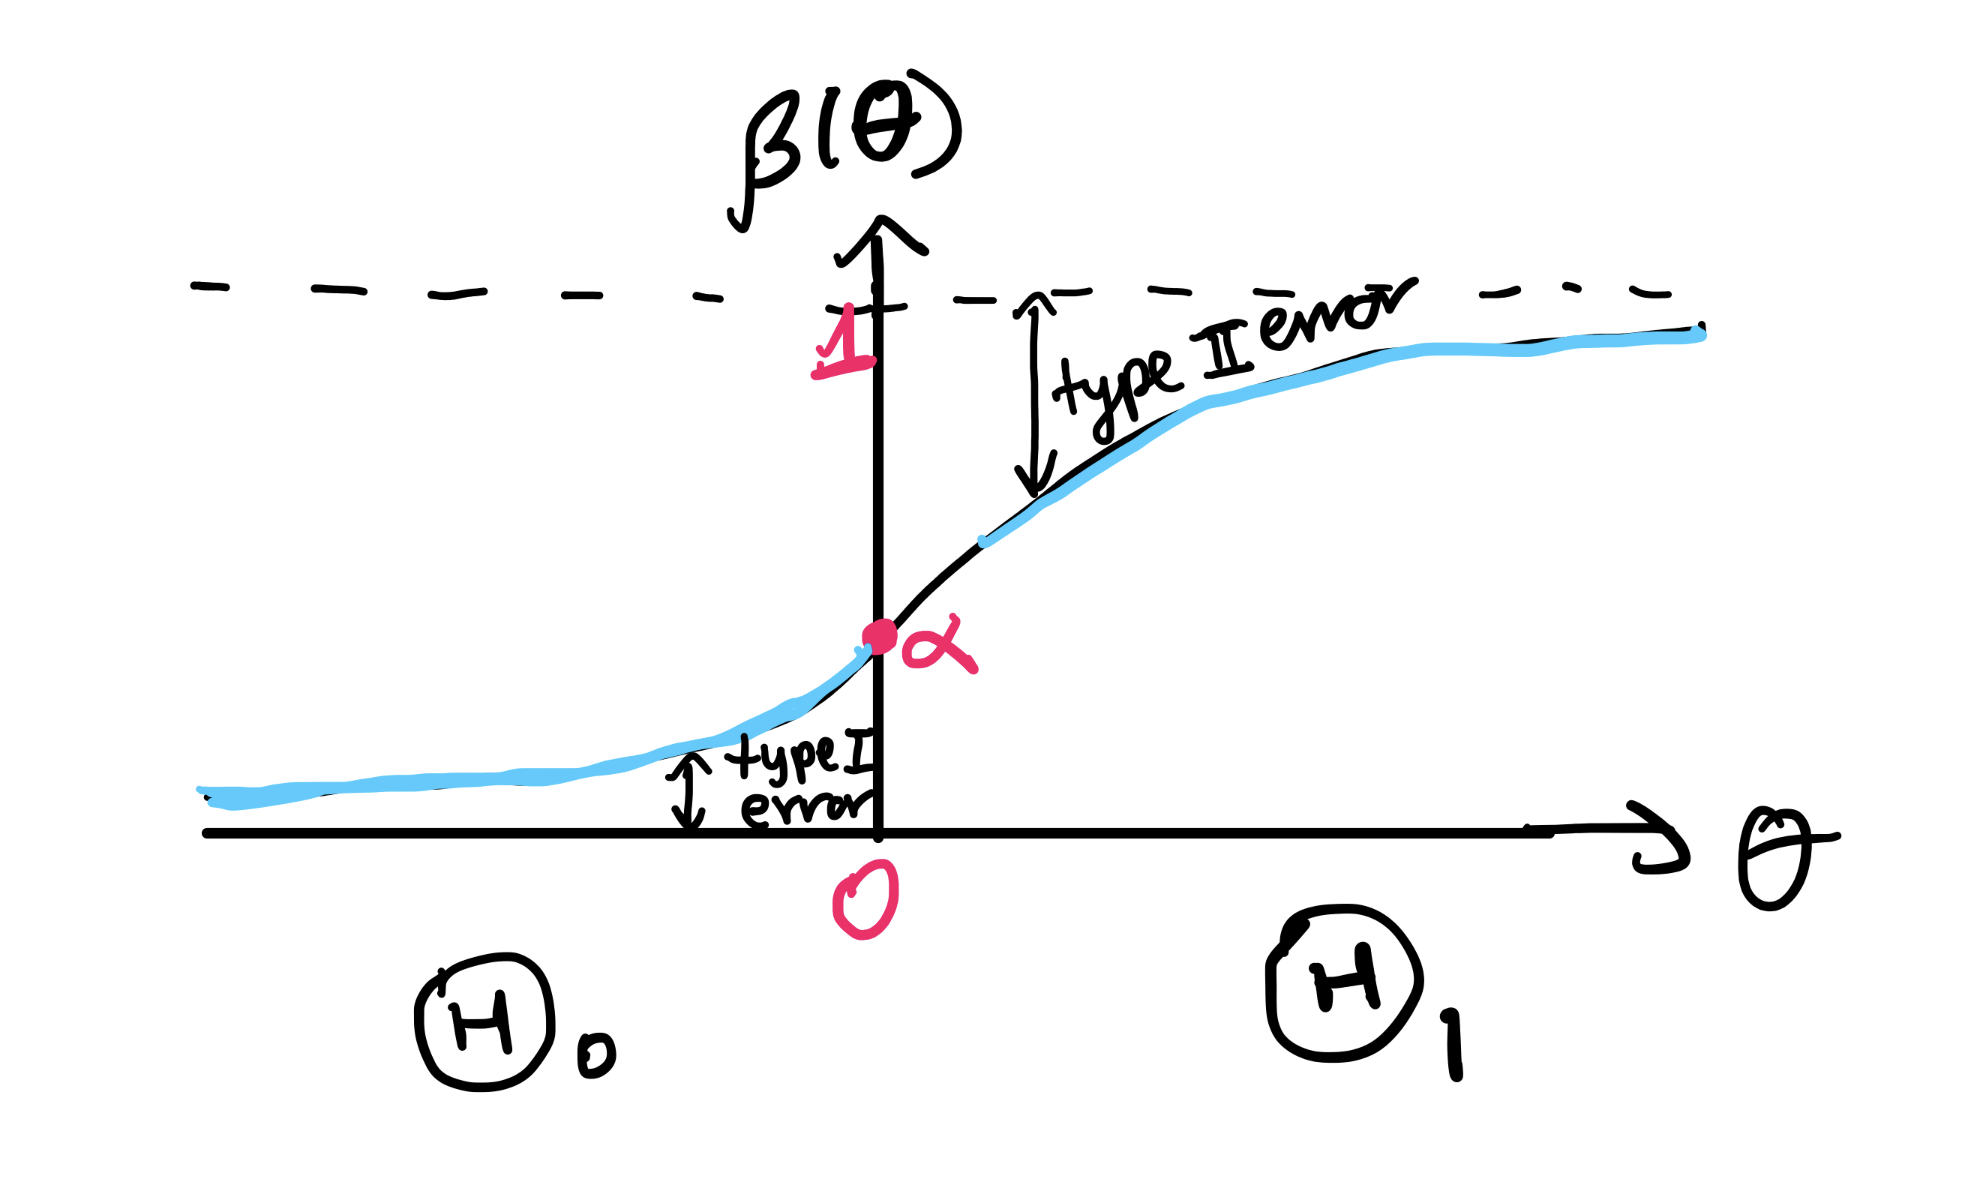 β(θ)
1
type II error
α
type I
error
θ
0
Θ0
Θ1